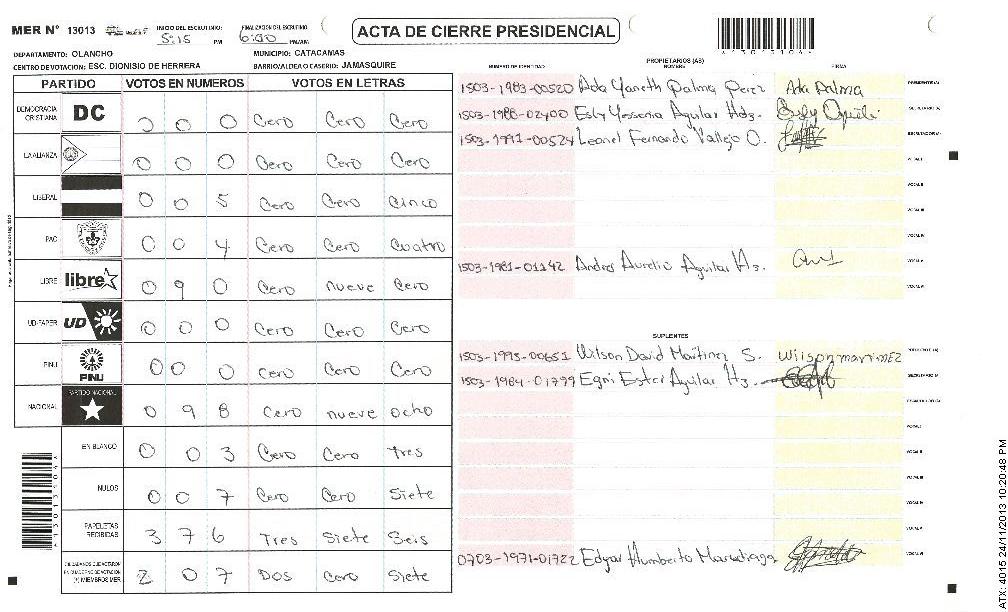 MER N° 13013 INICIO DEL ESCRUTINIO: 5:15 PM FINALIZACION DEL ESCRUTINIO: 6:00 PM/AM
ACTA DE CIERRE PRESIDENCIAL
DEPARTAMENTO: OLANCHO MUNICIPIO: CATACAMAS
CENTRO DE VOTACION: ESC. DIONISIO DE HERRERA BARRIO/ALDEA O CASERIO: JAMASQUIRE
PARTIDO VOTOS EN NUMEROS VOTOS EN LETRAS
DEMOCRACIA CRISTIANA DC 0 0 0 Cero Cero Cero
LA ALIANZA 0 0 0 Cero Cero Cero
LIBERAL 0 0 5 Cero Cero Cinco
PAC 0 0 4 Cero Cero Cuatro
LIBRE libre 0 9 0 Cero nueve Cero
UD-FAPER UD 0 0 0 Cero Cero Cero
PINU PINU 0 0 0 Cero Cero Cero
NACIONAL PARTIDO NACIONAL 0 9 8 Cero nueve ocho
EN BLANCO 0 0 3 Cero Cero Tres
NULOS 0 0 7 Cero Cero Siete
PAPELETAS RECIBIDAS 3 7 6 Tres Siete Seis
CIUDADANOS QUE VOTARON EN CUADERNO DE VOTACION (+) MIEMBROS MER 2 0 7 Dos Cero Siete
PROPIETARIOS (AS)
NUMERO DE IDENTIDAD NOMBRE FIRMA
1503-1983-00520 Ada Yaneth Palma Perz Ada Palma
1503-1988-02400 Esly Yessenia Aguilar Hdz.
1503-1991-00524 Leonel Fernando Vallejo O.
1503-1981-01142 Andres Aurelio Aguilar Hs.
SUPLENTES
1503-1995-00651 Wilson David Martinez S. Wilsonmartinez
1503-1984-01799 Egni Ester Aguilar Hz.
0703-1971-01722 Edgar Humberto
ATX: 4015 24/11/2013 10:20:48 PM